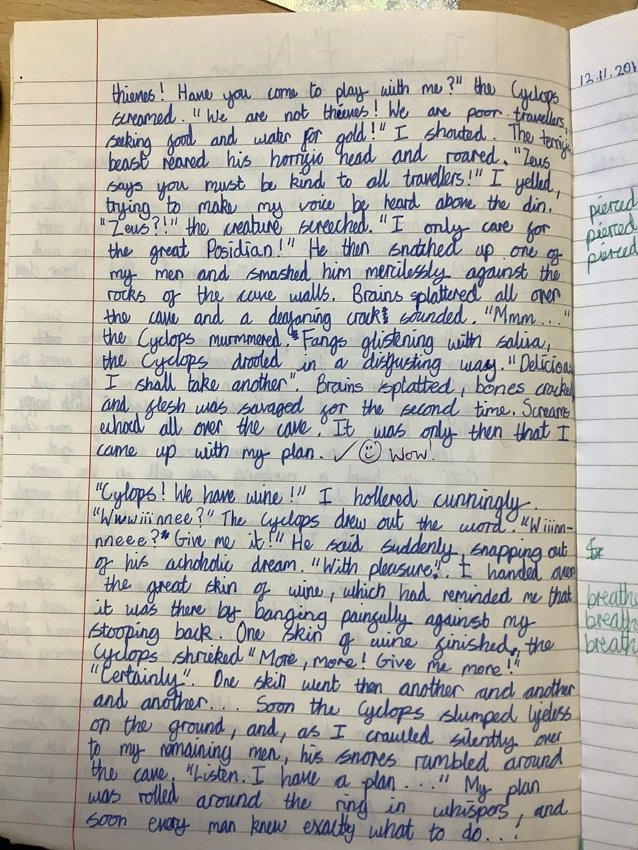 thieves! Have you come to play with me?" the Cyclops
screamed. "We are not thieves! We are poor travellers,
seeking food and water for gold!" I shouted. The terrific
beast reared his horrific head and roared. "Zeus
says you must be kind to all travellers!" I yelled,
trying to make my voice be heard above the din.
"Zeus?!" the creature screeched. "I only care for
the great Posidian!" He then snatched up one of
my men and smashed him mercilessly against the
rocks of the cave walls. Brains splattered all over
the cave and a deafening crack sounded. "Mmm..."
the Cyclops murmmered. Fangs glistening with saliva,
the Cyclops drooled in a disgusting way. "Delicious
I shall take another". Brains splatted, bones cracked
and flesh was savaged for the second time. Screams
echoed all over the cave. It was only then that I
came up with my plan. ✓ ☺ Wow!
"Cylops! We have wine!" I hollered cunningly.
"Wwwiiinnee?" The Cyclops drew out the word. "Wiiinn-
nneee? Give me it!" He said suddenly, snapping out
of his achoholic dream. "With pleasure". I handed over
the great skin of wine, which had reminded me that
it was there by banging painfully against my
stooping back. One skin of wine finished, the
Cyclops shrieked "More, more! Give me more!"
"Certainly". One skin went then another and another
and another... Soon the Cyclops slumped lifeless
on the ground, and, as I crawled silently over
to my remaining men, his snores rambled around
the cave. "Listen. I have a plan...." My plan
was rolled around the ring in whispers, and
soon every man knew exactly what to do...!
12.11.201
pierced
pierced
pierced
breathe
breath
breath